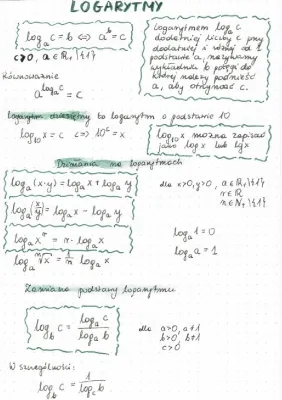 LOGARYTMY
log_a c = b ⇔ a^b = c
c>0, a∈R₊\{1}
Logarytmem log_a c
dodatniej liczby c przy
dodatniej i różnej od 1
podstawie a, nazywamy
wykładnik b potęgi do
której należy podnieść
a, aby otrzymać c.
Równoważnie
a^(log_a c) = c
Logarytm dziesiętny to logarytm o podstawie 10
log₁₀ x = c ⇔ 10^c = x
log₁₀ x można zapisać
jako log x lub lg x
Działania na logarytmach
log_a (x·y) = log_a x + log_a y
dla x>0, y>0, a∈R₊\{1}
r∈R
n∈N₊\{1}
log_a (x/y) = log_a x − log_a y
log_a x^r = r · log_a x
log_a 1 = 0
log_a ⁿ√x = 1/n log_a x
log_a a = 1
Zamiana podstawy logarytmu
log_b c = log_a c / log_a b
dla a>0, a≠1
b>0, b≠1
c>0
W szczególności:
log_b c = 1 / log_c b